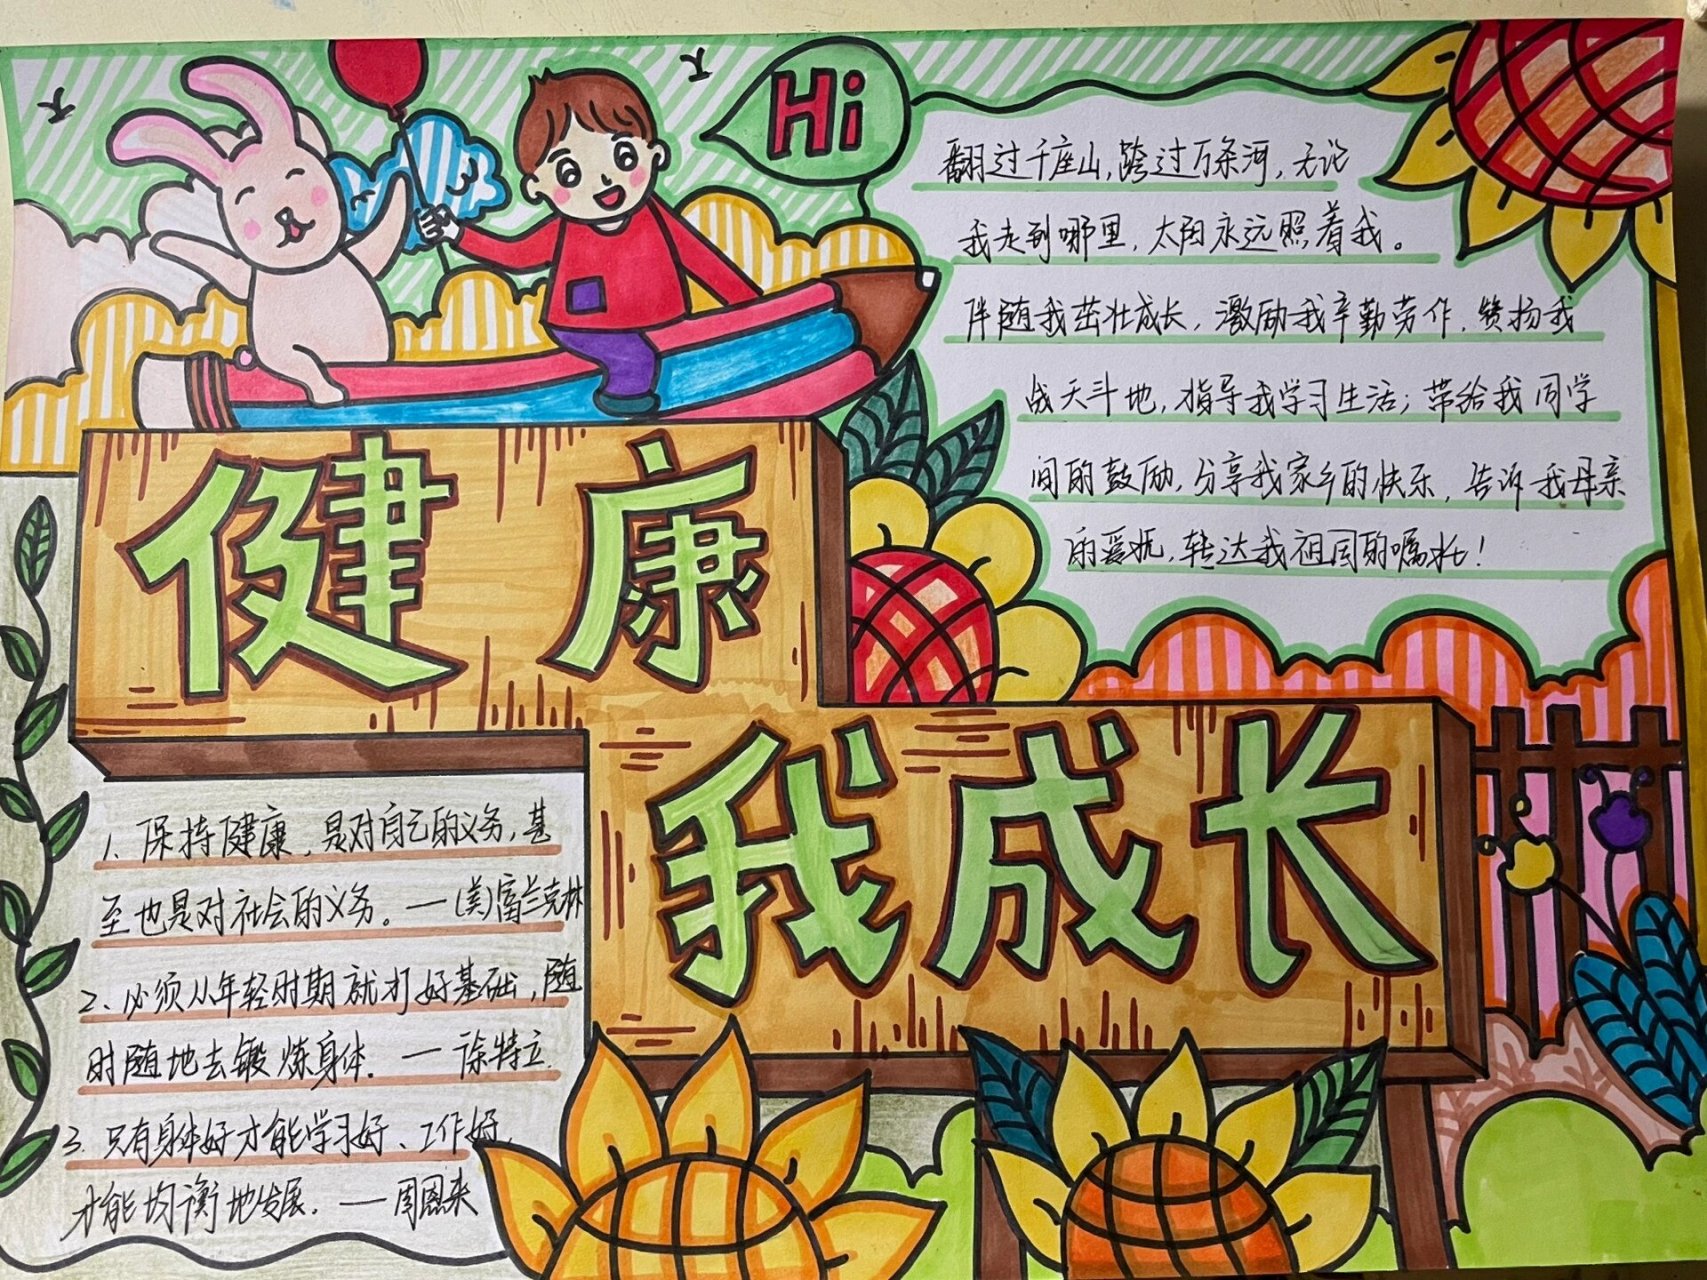 Hi
翻过千座山,跨过万条河,无论
我走到哪里,太阳永远照着我。
伴随我茁壮成长,激励我辛勤劳作,赞扬我
战天斗地,指导我学习生活;带给我同学
间的鼓励,分享我家乡的快乐,告诉我母亲
的爱抚,转达我祖国的嘱托!
健康
我成长
1、保持健康,是对自己的义务,甚
至也是对社会的义务。—(美)富兰克林
2、必须从年轻时期就打好基础,随
时随地去锻炼身体.—徐特立.
3、只有身体好才能学习好、工作好,
才能均衡地发展.—周恩来